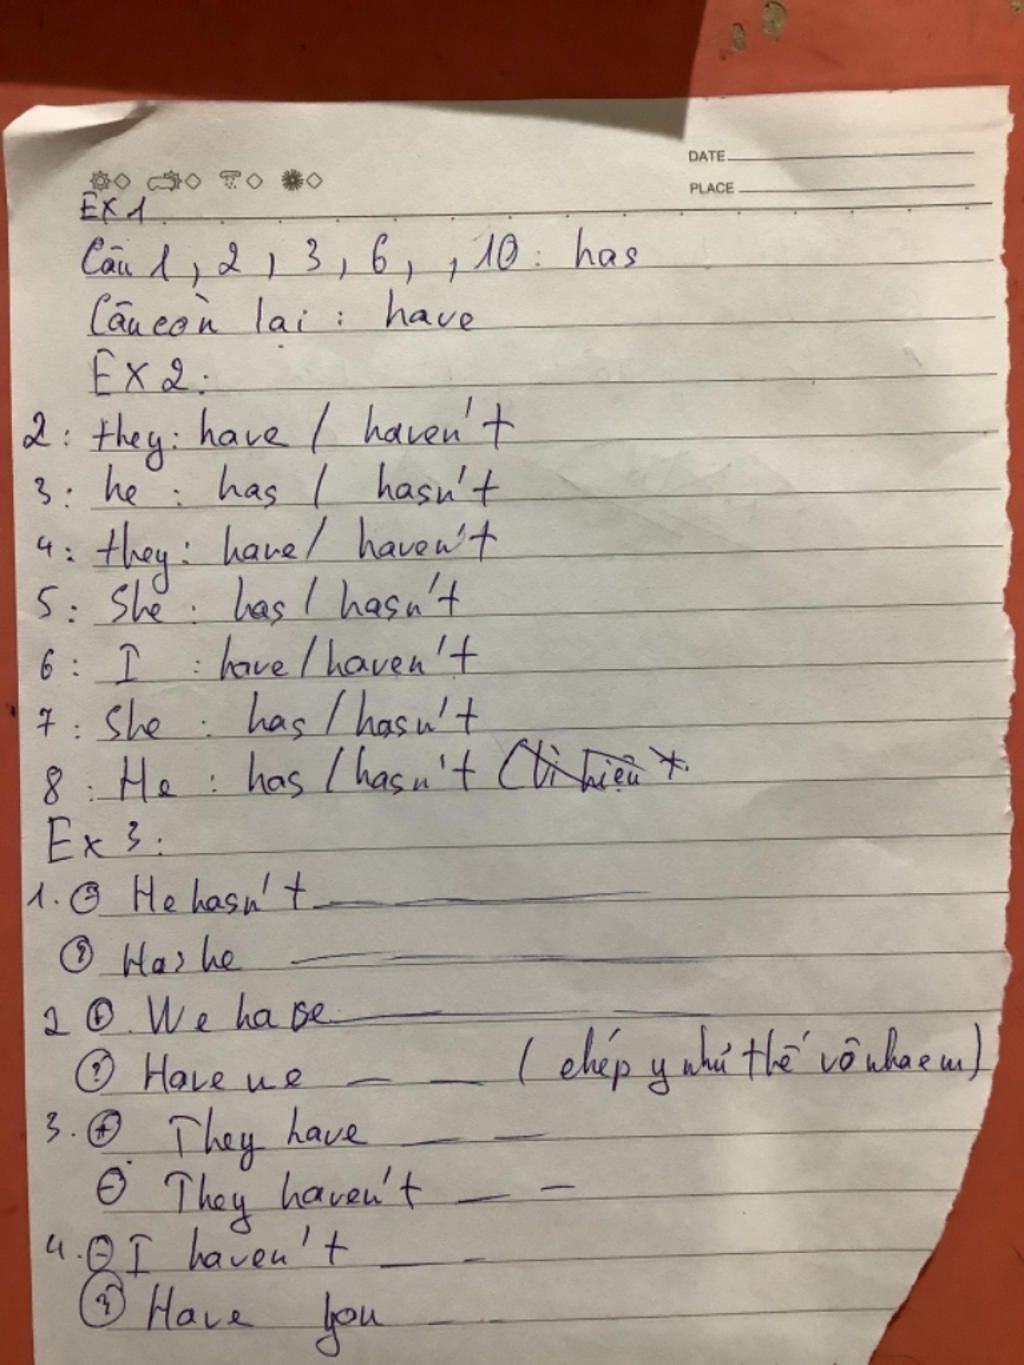 DATE
PLACE
EX 1
Câu 1, 2, 3, 6, , 10: has
Câu còn lại: have
EX 2:
2: they: have / haven't
3: he: has / hasn't
4: they: have / haven't
5: She: has / hasn't
6: I: have / haven't
7: She: has / hasn't
8: He: has / hasn't
Ex 3:
1. (-) He hasn't
(?) Has he
2 (+) We have
(?) Have we (chép y như thế vô nha em)
3. (+) They have
(-) They haven't
4. (-) I haven't
(?) Have you